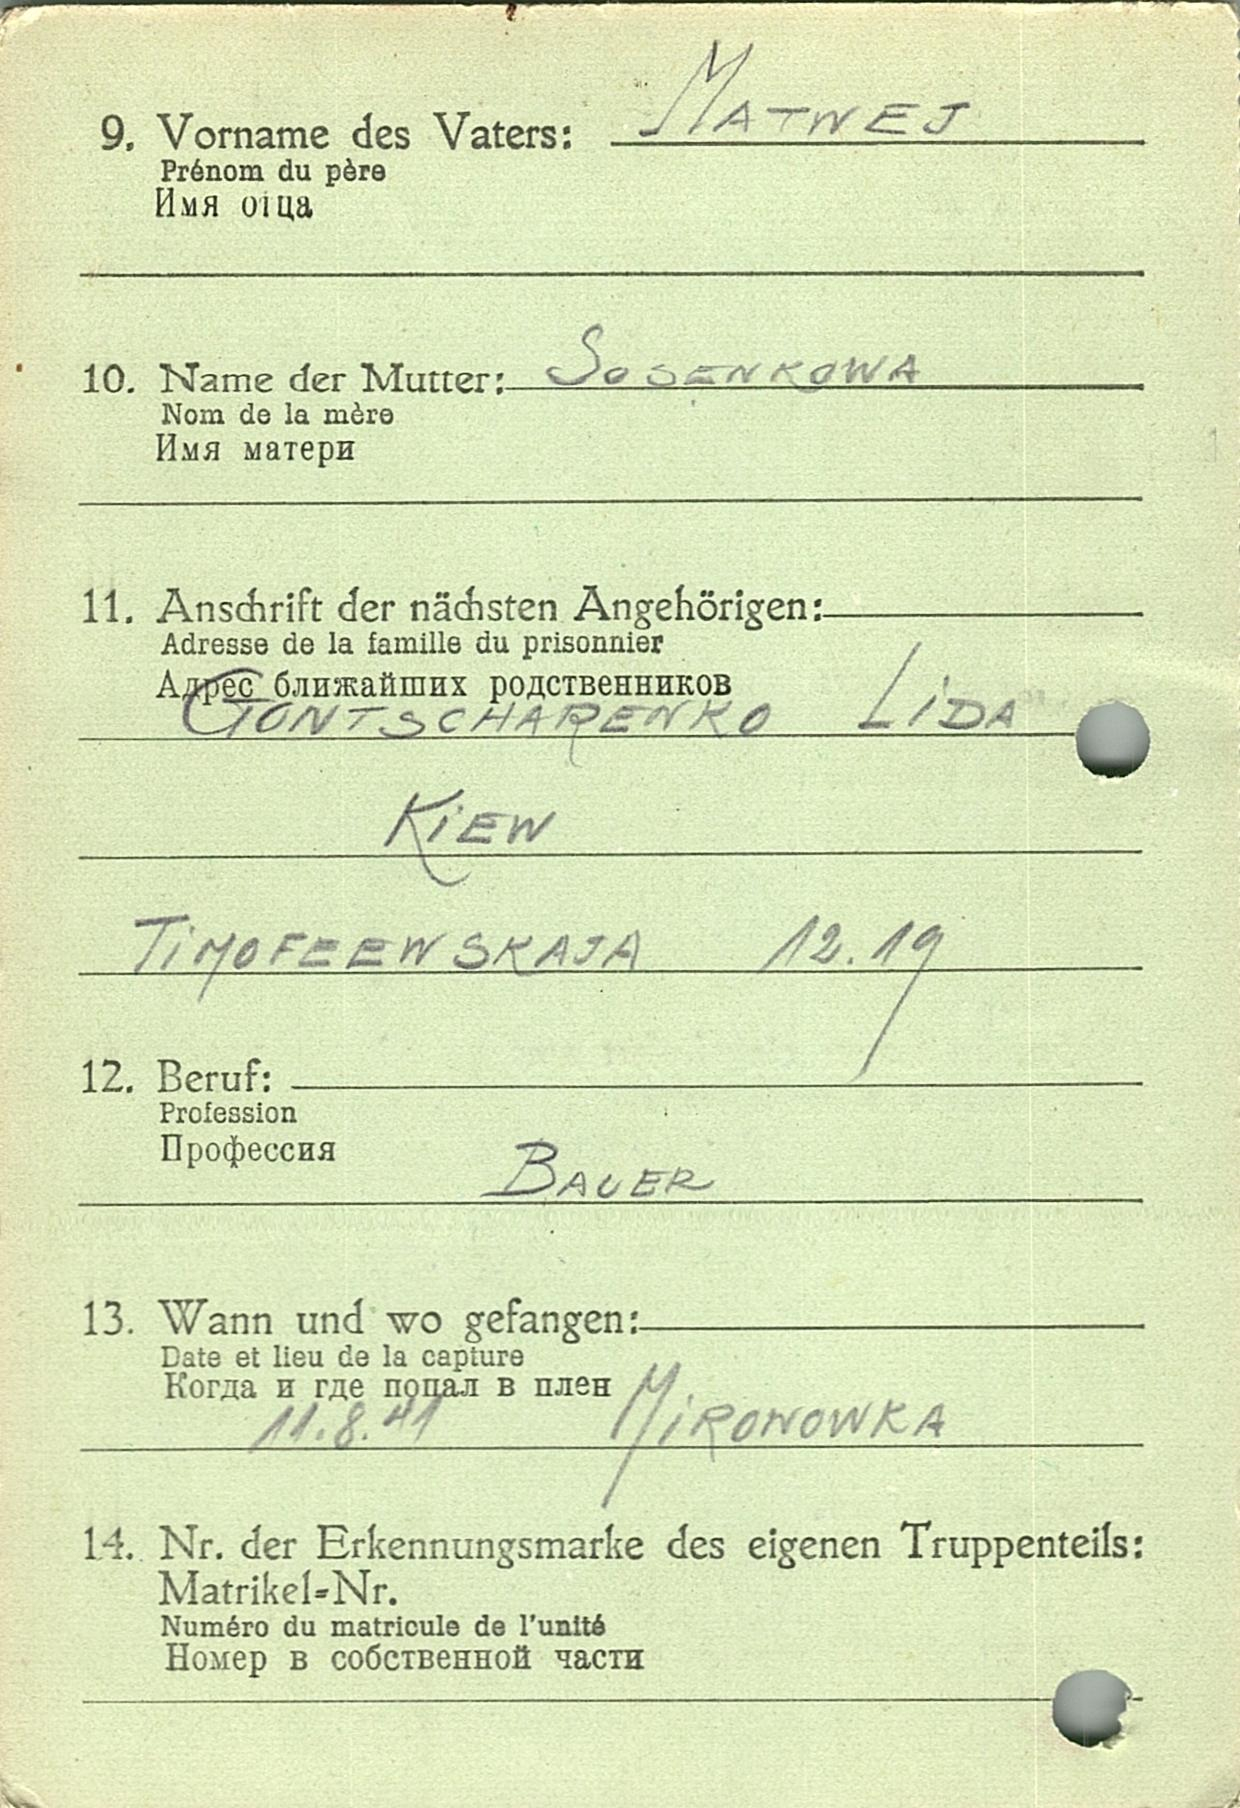 9. Vorname des Vaters: MATWEJ
Prénom du père
Имя отца
10. Name der Mutter: SOSENKOWA
Nom de la mère
Имя матери
11. Anschrift der nächsten Angehörigen:
Adresse de la famille du prisonnier
Адрес ближайших родственников
GONTSCHARENKO LIDA
KIEW
TIMOFEEWSKAJA 12.19
12. Beruf:
Profession
Профессия
BAUER
13. Wann und wo gefangen:
Date et lieu de la capture
Когда и где попал в плен
11.8.41 MIRONOWKA
14. Nr. der Erkennungsmarke des eigenen Truppenteils:
Matrikel=Nr.
Numéro du matricule de l'unité
Номер в собственной части